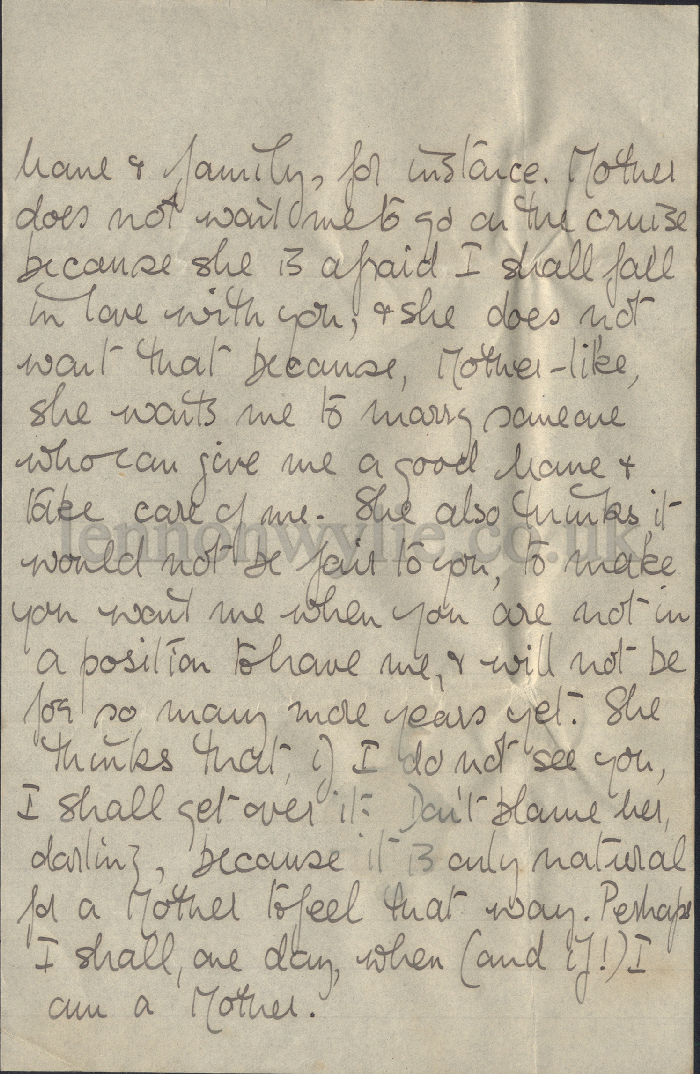 home & family, for instance. Mother
does not want me to go on the cruise
because she is afraid I shall fall
in love with you, & she does not
want that because, Mother-like,
she wants me to marry someone
who can give me a good home &
take care of me. She also thinks it
lennonwylie.co.uk
would not be fair to you, to make
you want me when you are not in
a position to have me, & will not be
for so many more years yet. She
thinks that, if I do not see you,
I shall get over it. Don't blame her,
darling, because it is only natural
for a Mother to feel that way. Perhaps
I shall, one day, when (and if!) I
am a Mother.